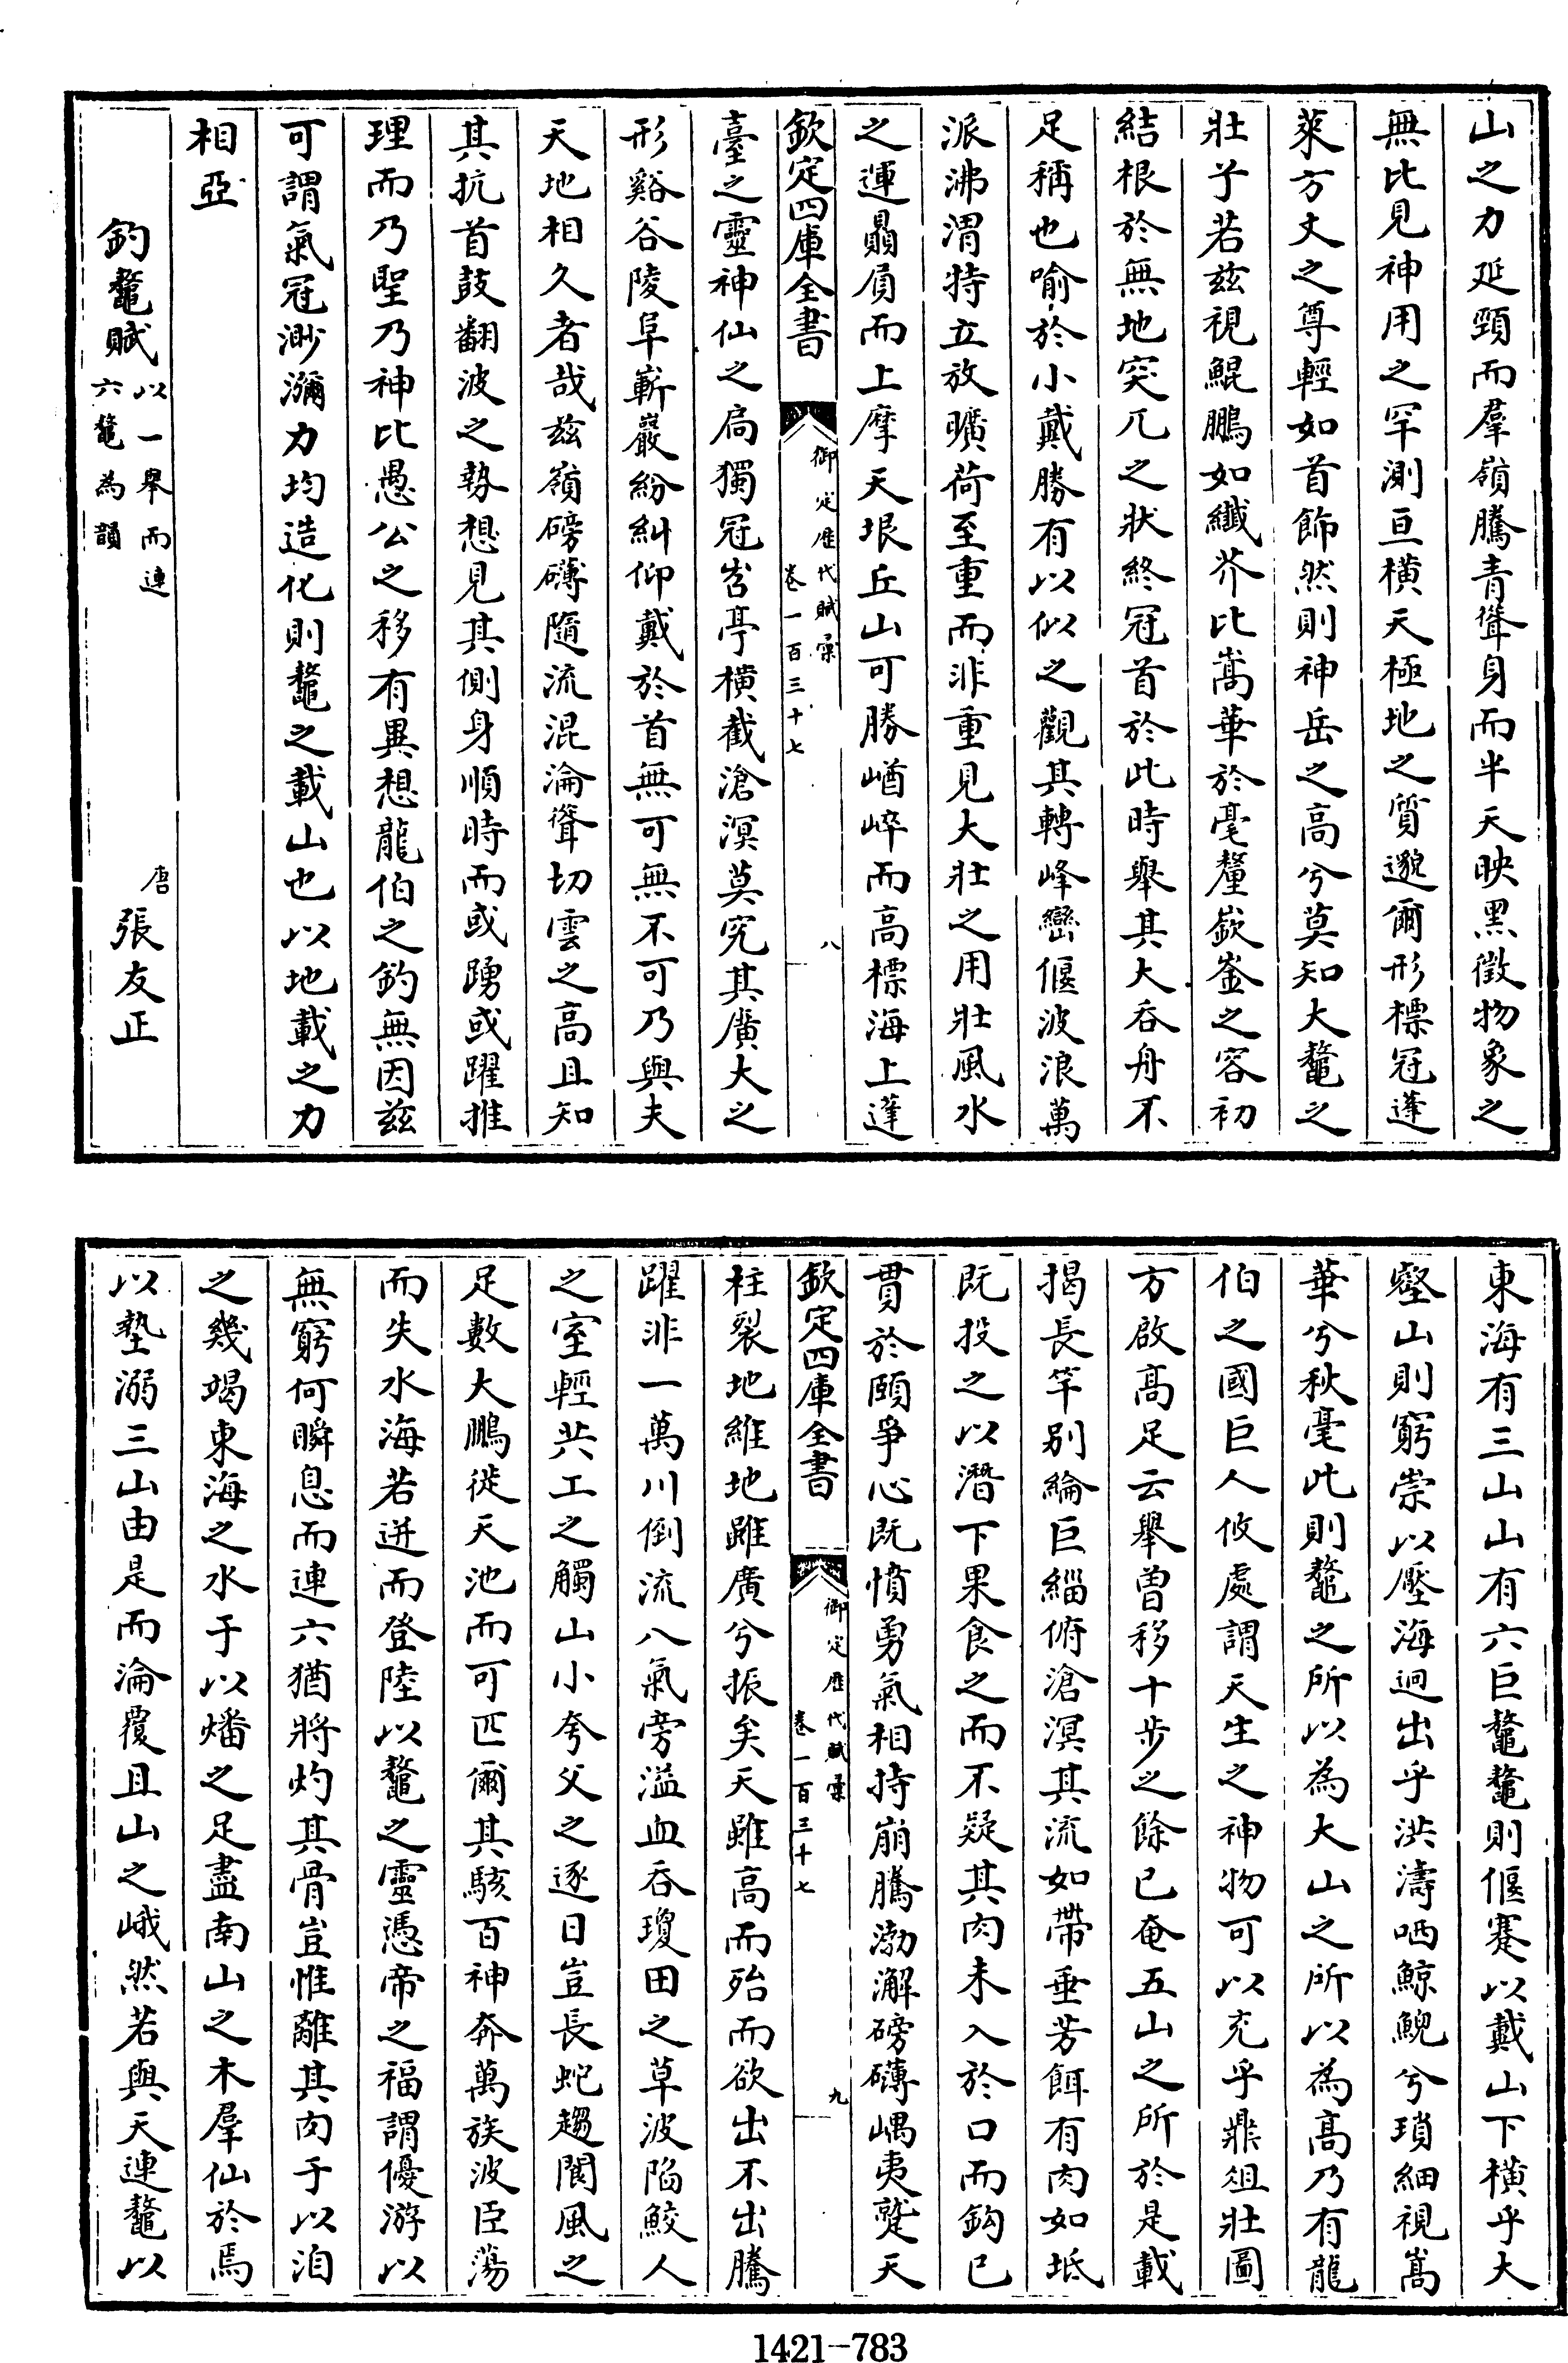 山之力延頸而羣嶺騰青聳身而半天映黑徵物象之
無比見神用之罕測亘橫天極地之質邈爾形標冠蓬
萊方丈之尊輕如首飾然則神岳之高兮莫知大鼇之
壯乎若兹視鯤鵬如纖芥比嵩華於毫釐嶔崟之容初
結根於無地突兀之狀終冠首於此時舉其大吞舟不
足稱也喻於小戴勝有以似之觀其轉峰巒偃波浪萬
派沸渭特立放曠荷至重而非重見大壯之用壯風水
之運贔屓而上摩天垠丘山可勝崷崪而高標海上蓬
欽定四庫全書
御定歷代賦彙
卷一百三十七
八
臺之靈神仙之扃獨冠岧亭橫截滄溟莫究其廣大之
形谿谷陵阜嶄巖紛糾仰戴於首無可無不可乃與夫
天地相久者哉兹嶺磅礴隨流混淪聳切雲之高且知
其抗首鼓翻波之勢想見其側身順時而或踴或躍推
理而乃聖乃神比愚公之移有異想龍伯之釣無因兹
可謂氣冠渺瀰力均造化則鼇之載山也以地載之力
相亞
釣鼇賦
以一舉而連
六鼇為韻
唐
張友正
東海有三山山有六巨鼇鼇則偃蹇以戴山下橫乎大
壑山則窮崇以壓海迥出乎洪濤哂鯨鯢兮瑣細視嵩
華兮秋毫此則鼇之所以為大山之所以為高乃有龍
伯之國巨人攸處謂天生之神物可以充乎鼎俎壯圖
方啟高足云舉曽移十步之餘已奄五山之所於是載
揭長竿別綸巨緇俯滄溟其流如帶垂芳餌有肉如坻
既投之以潛下果食之而不疑其肉未入於口而鈎已
貫於頤爭心既憤勇氣相持崩騰渤澥磅礴嵎夷蹵天
欽定四庫全書
御定歷代賦彙
卷一百三十七
九
柱裂地維地雖廣兮振矣天雖高而殆而欲出不出騰
躍非一萬川倒流八氣旁溢血吞瓊田之草波陷鮫人
之室輕共工之觸山小夸父之逐日豈長蛇趨閬風之
足數大鵬徙天池而可匹爾其駭百神奔萬族波臣蕩
而失水海若迸而登陸以鼇之靈憑帝之福謂優游以
無窮何瞬息而連六猶將灼其骨豈惟離其肉于以洎
之幾竭東海之水于以燔之足盡南山之木羣仙於焉
以墊溺三山由是而淪覆且山之峨然若與天連鼇以
1421-783